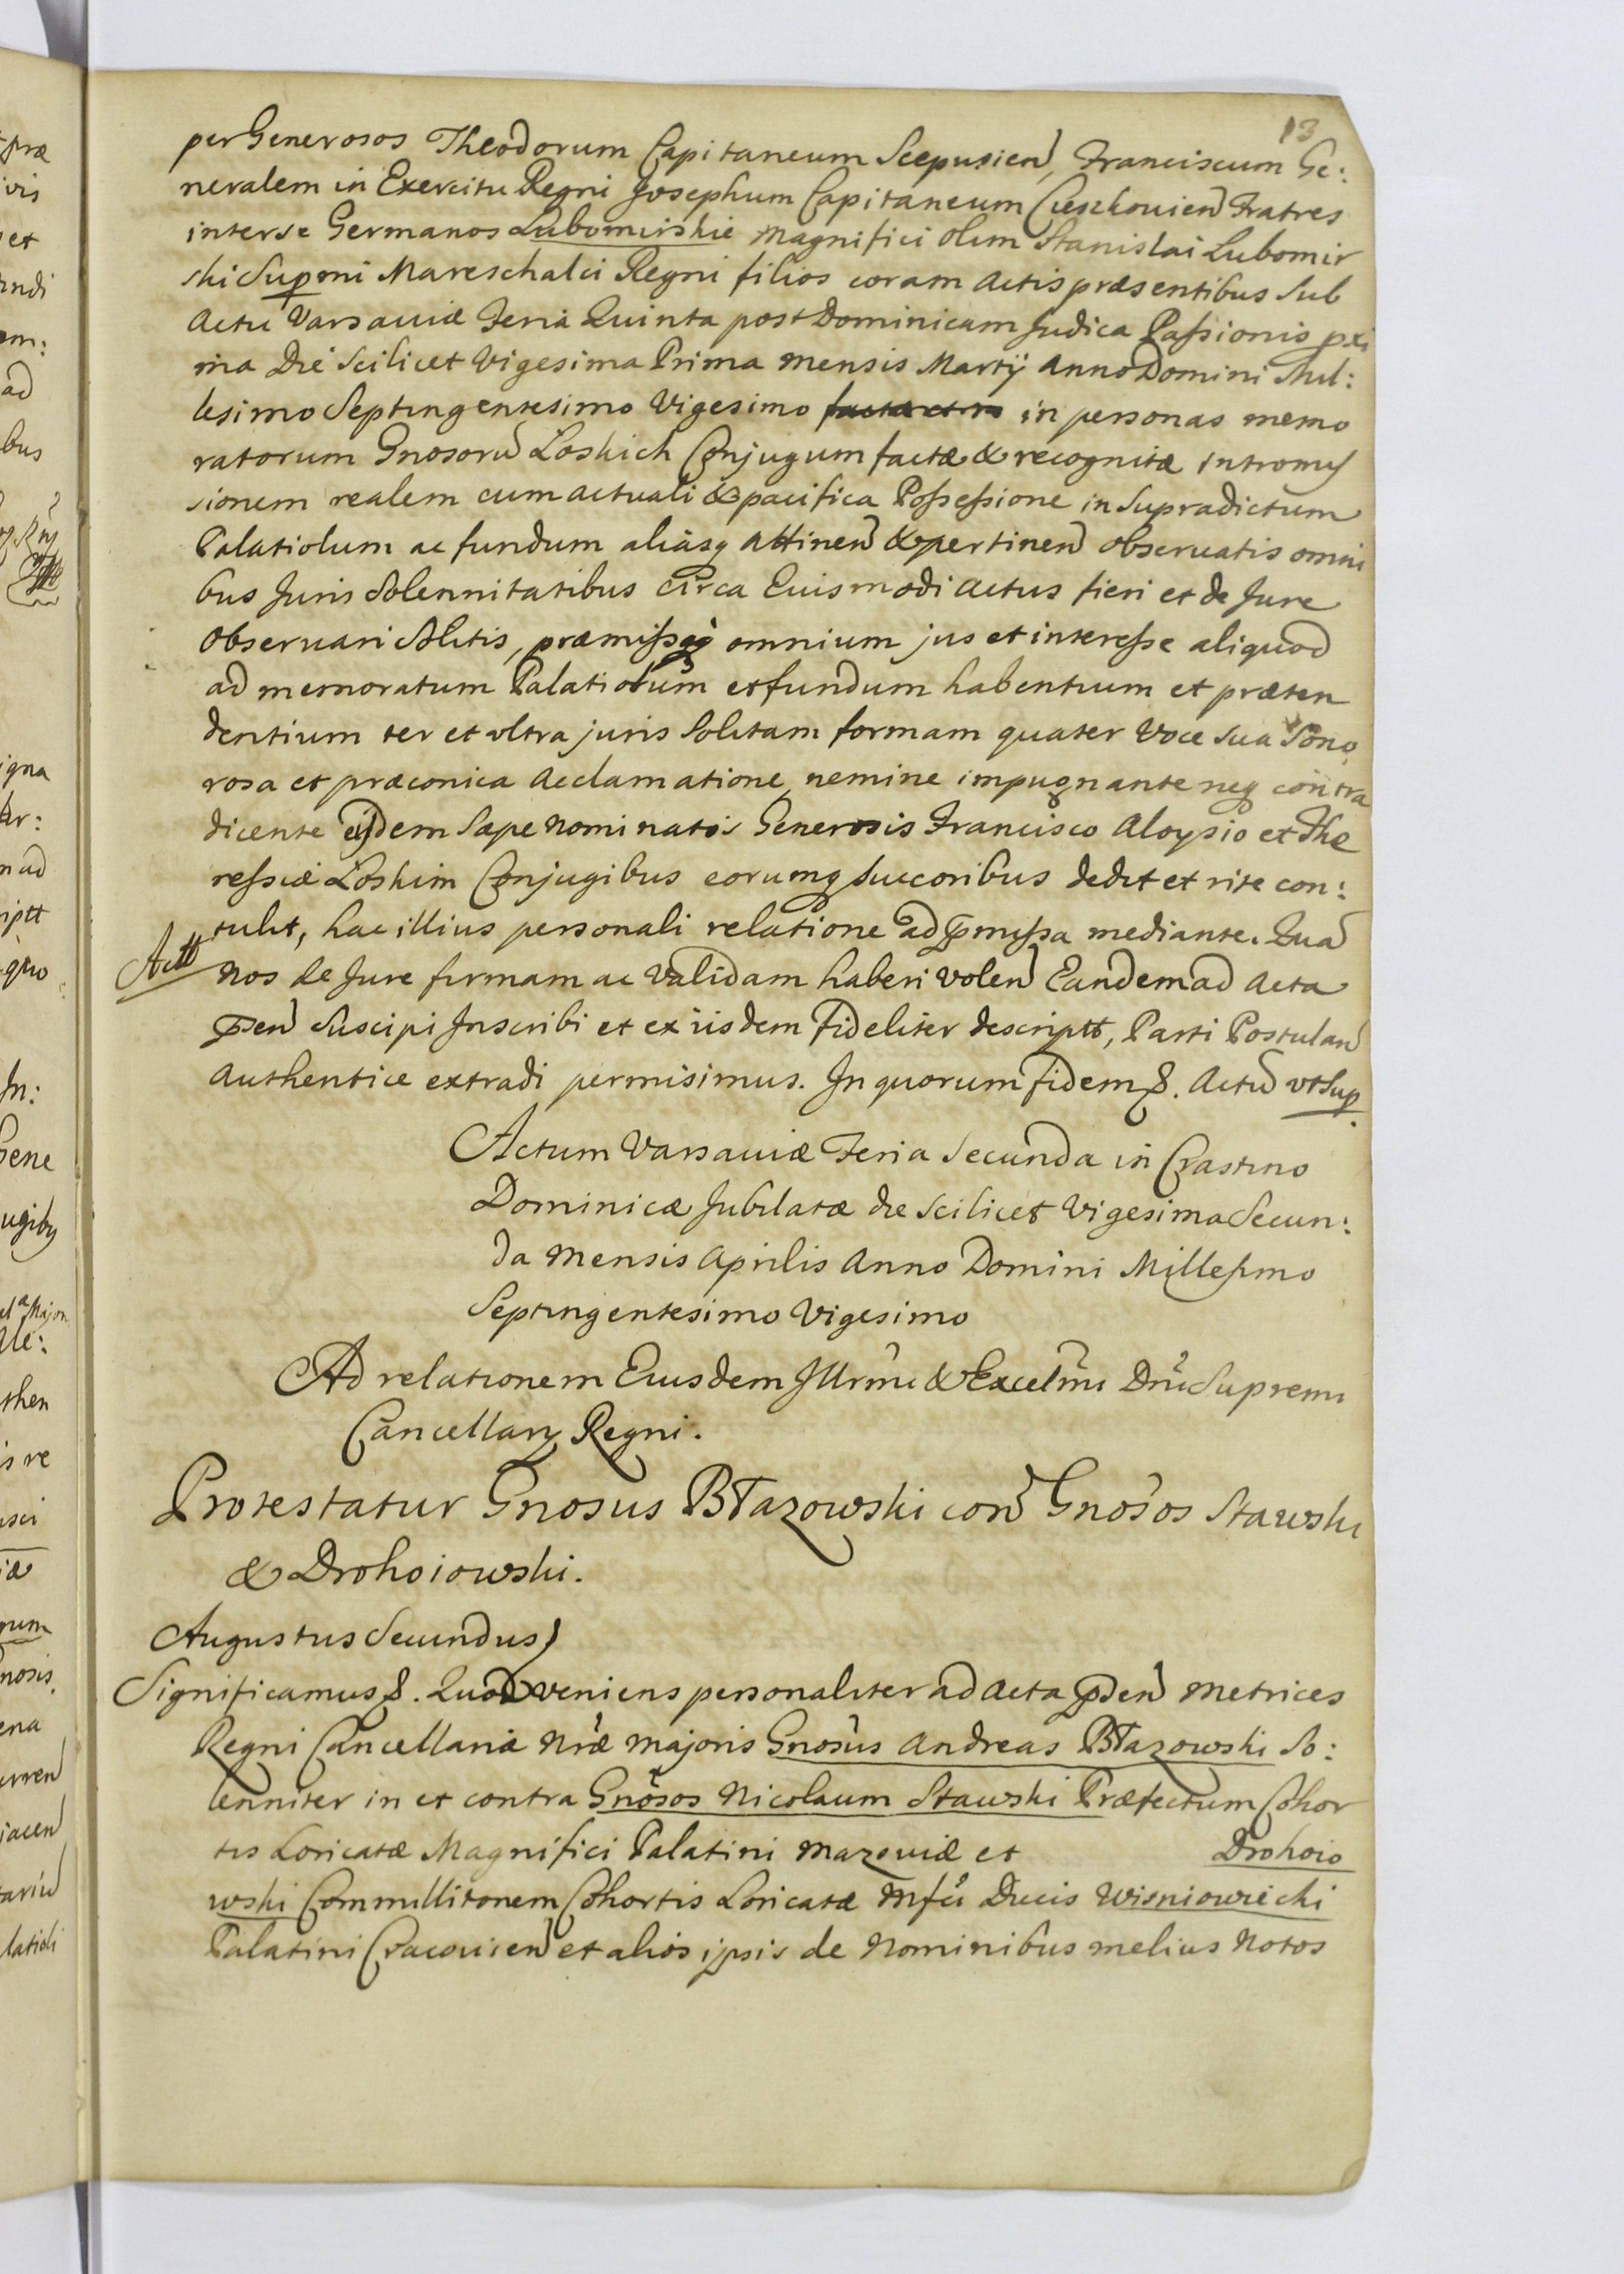 13
per Generosos Theodorum Capitaneum Scepusien, Franciscum Ge:
neralem in Exercitu Regni Josephum Capitaneum Cieszkouien Fratres
inter se Germanos Lubomirskie Magnifici olim Stanislai Lubomir
ski Supmi Mareschalci Regni filios coram Actis præsentibus sub
Actu Varsauiæ Feria Quinta post Dominicam Judica Passionis pxi
ma Die scilicet Vigesima Prima mensis Martij Anno Domini Mil:
lesimo Septingentesimo Vigesimo in personas memo
ratorum Gnosorũ Loskich Conjugum factæ & recognitæ intromis
sionem realem cum actuali & pacifica Possessione in supradictum
Palatiolum ac fundum aliasq attinen & pertinen observatis omni
bus Juris Solennitatibus circa Euismodi actus fieri et de Jure
observari solitis, præmissoq omnium jus et interesse aliquod
ad memoratum Palatiolum et fundum habentium et præten
dentium ter et vltra juris solitam formam quater Voce sua Sono
rosa et præconica acclamatione nemine impugnante neq contra
dicente eisdem sæpe nominatis Generosis Francisco Aloysio et The
ressiæ Loskim Conjugibus eorumq succoribus dedit et rite con:
tulit, hac illius personali relatione ad pmissa mediante. Quã
Actt
nos de Jure firmam ac Validam haberi volen Eandem ad Acta
psen suscipi Inscribi et ex iisdem fideliter descriptt, Parti Postulan
Authentice extradi permisimus. In quorum fidem &. Actũ vt sup.
Actum Varsauiæ Feria Secunda in Crastino
Dominicæ Jubilatæ die scilicet Vigesima Secun:
da Mensis Aprilis Anno Domini Millesimo
Septingentesimo Vigesimo
Ad relationem Eiusdem Illrmi & Excelmi Dni Supremi
Cancellary Regni.
Protestatur Gnosus Błazowski con Gnosos Stawski
& Drohoiowski.
Augustus Secundus
Significamus &. Quod veniens personaliter ad Acta psen Metrices
Regni Cancellariæ Nræ Majoris Gnosus Andreas Błazowski So:
lenniter in et contra Gnosos Nicolaum Stawski Præfectum Cohor
tis Loricatæ Magnifici Palatini Mazouiæ et Drohoio
wski Commillitonem Cohortis Loricatæ Mfci Ducis Wisniowiecki
Palatini Cracouien et alios ipsis de Nominibus melius Notos